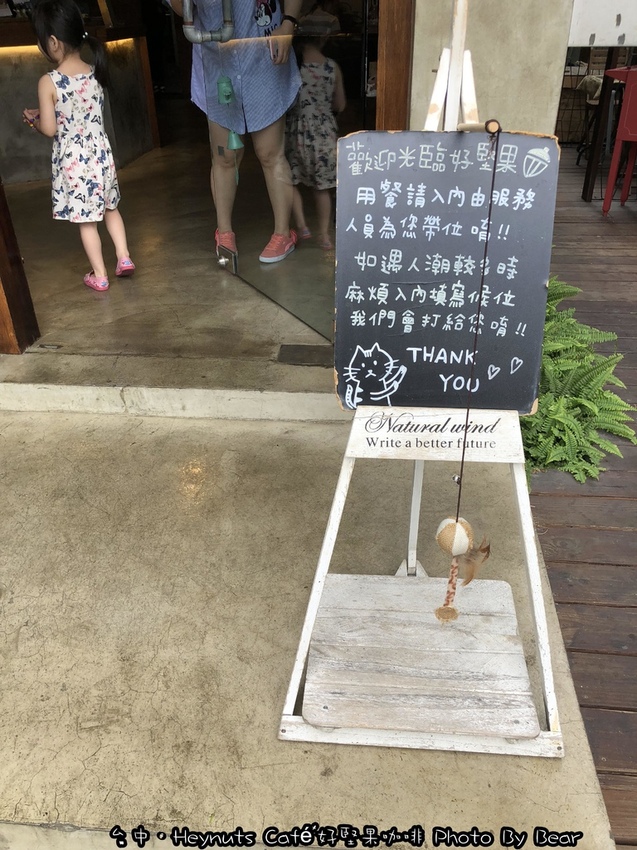 歡迎光臨好堅果
用餐請入內由服務
人員為您帶位唷!!
如遇人潮較多時
麻煩入內填寫候位
我們會打給您唷!!
THANK
YOU
Natural wind
Write a better future
台中。Heynuts Café好堅果咖啡 Photo By Bear